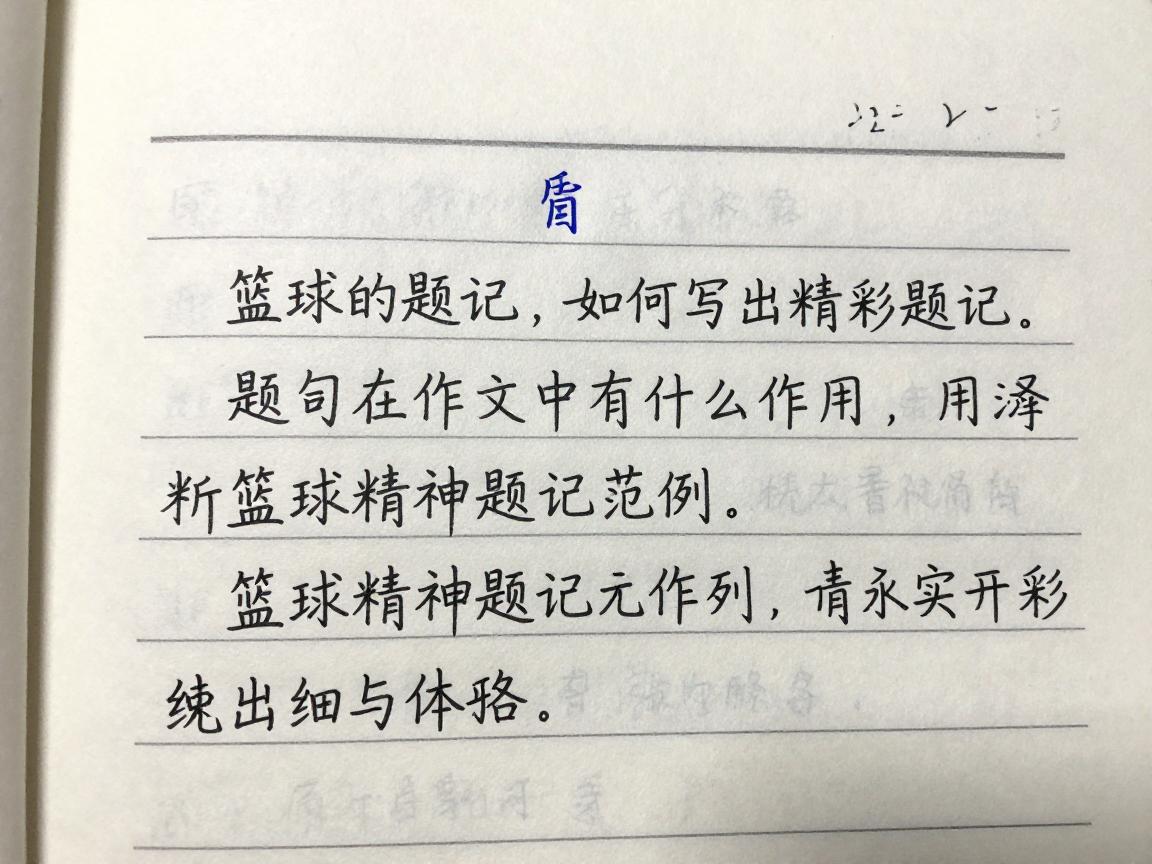 盾
篮球的题记，如何写出精彩题记。
题句在作文中有什么作用，用泽
析篮球精神题记范例。
篮球精神题记元作列，青永实开彩
出细与体。